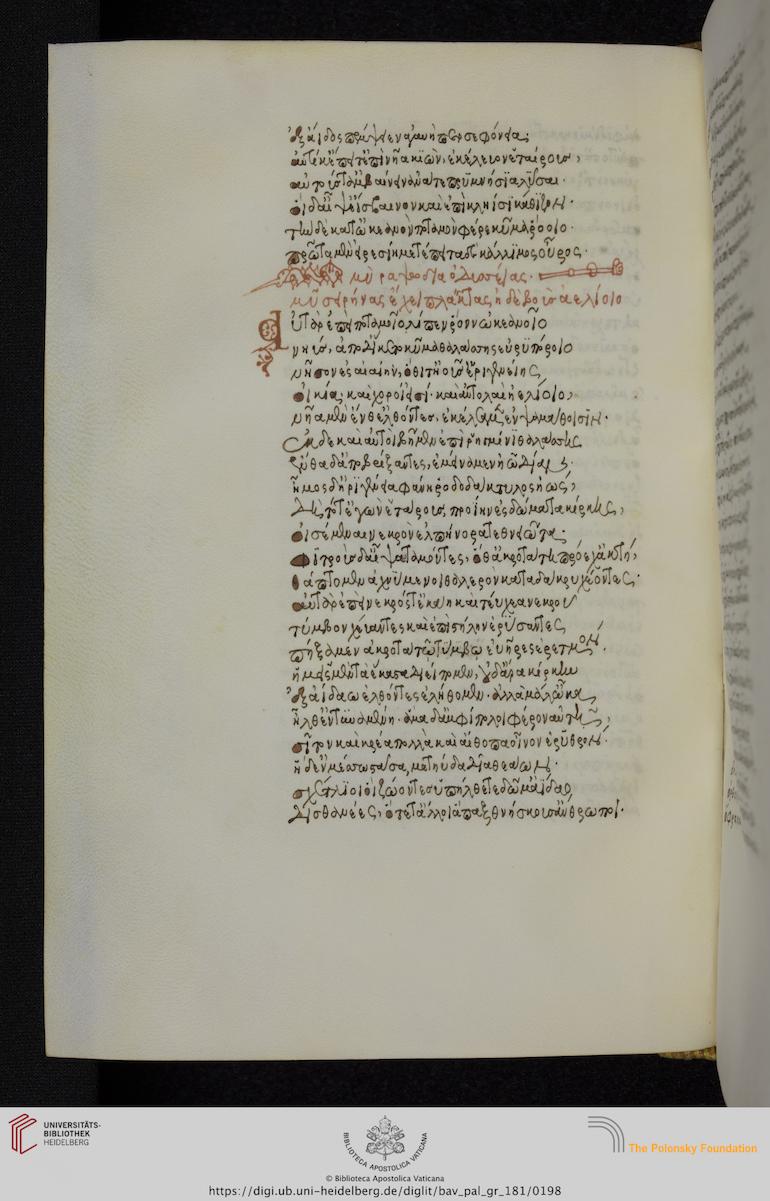 ἐξ ἄιδος πέμψειεν ἀγαυὴ περσεφόνεια;
αὐτίκ' ἔπειτ' ἐπὶ νῆα κιὼν, ἐκέλευον ἑταίρους,
αὐτούς τ' ἀμβαίνειν ἀνά τε πρυμνήσια λῦσαι.
οἱ δ' αἶψ' εἴσβαινον καὶ ἐπὶ κληῖσι κάθιζον.
τὴν δὲ κατ' ὠκεανὸν ποταμὸν φέρε κῦμα ῥόοιο.
πρῶτα μὲν εἰρεσίη μετέπειτα δὲ κάλλιμος οὖρος.
μῦ ῥαψωδία ὀδυσσείας.
μῦ σειρήνας ἔχει πλαγκτὰς ἠδὲ βοῦς ἀελίοιο
Αὐτὰρ ἐπεὶ ποταμοῖο λίπεν ῥόον ὠκεανοῖο
νηῦς, ἀπὸ δ' ἵκετο κῦμα θαλάσσης εὐρυπόροιο
νῆσον ἐς αἰαίην, ὅθι τ' ἠοῦς ἠριγενείης,
οἰκία, καὶ χοροί εἰσι. καὶ ἀντολαὶ ἠελίοιο,
νῆα μὲν ἔνθ' ἐλθόντες, ἐκέλσαμεν ἐν ψαμάθοισιν.
ἐκ δὲ καὶ αὐτοὶ βῆμεν ἐπὶ ῥηγμίνι θαλάσσης
ἔνθα δ' ἀποβρίξαντες, ἐμείναμεν ἠῶ δῖαν.
ἦμος δ' ἠριγένεια φάνη ῥοδοδάκτυλος ἠώς,
δὴ τότ' ἐγὼν ἑτάρους προΐειν ἐς δώματα κίρκης,
οἰσέμεναι νεκρὸν ἐλπήνορα τεθνειῶτα;
φιτροὺς δ' αἶψα ταμόντες, ὅθ' ἀκροτάτη πρόεχ' ἀκτή,
θάπτομεν ἀχνύμενοι θαλερὸν κατὰ δάκρυ χέοντες.
αὐτὰρ ἐπεὶ νεκρός τ' ἐκάη καὶ τεύχεα νεκροῦ
τύμβον χεύαντες καὶ ἐπὶ στήλην ἐρύσαντες
πήξαμεν ἀκροτάτω τύμβω εὐῆρες ἐρετμόν.
ἡμεῖς μὲν τὰ ἕκαστα διείπομεν, οὐδ' ἄρα κίρκην
ἐξ ἀίδαω ἐλθόντες ἐλήθομεν. ἀλλὰ μάλ' ὦκα
ἦλθ' ἐντυναμένη. ἅμα δ' ἀμφίπολοι φέρον αὐτῆ,
σῖτον καὶ κρέα πολλὰ καὶ αἴθοπα οἶνον ἐρυθρόν.
ἡ δ' ἐν μέσω στᾶσα, μετηύδα δῖα θεάων.
σχέτλιοι οἳ ζώοντες ὑπήλθετε δῶμ' ἀΐδαο,
δισθανέες, ὅτε τ' ἄλλοι ἅπαξ θνήσκουσ' ἄνθρωποι.
UNIVERSITÄTS-
BIBLIOTHEK
HEIDELBERG
BIBLIOTECA APOSTOLICA VATICANA
The Polonsky Foundation
© Biblioteca Apostolica Vaticana
https://digi.ub.uni-heidelberg.de/diglit/bav_pal_gr_181/0198